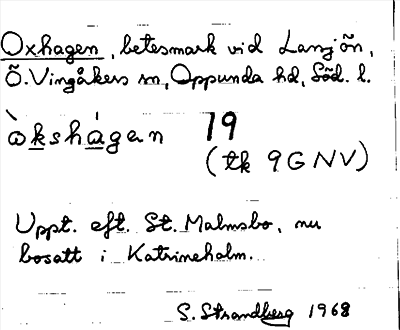 Oxhagen, betesmark vid Lansjön,
Ö. Vingåkers sn, Oppunda hd, Söd. l.
òkshágen 19
(tk 9G NV)
Uppt. eft. St. Malmsbo, nu
bosatt i Katrineholm.
S. Strandberg 1968